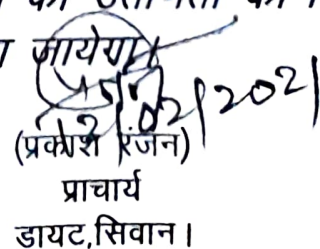 जायेगा।
12/02/2021
(प्रकाश रंजन)
प्राचार्य
डायट,सिवान।